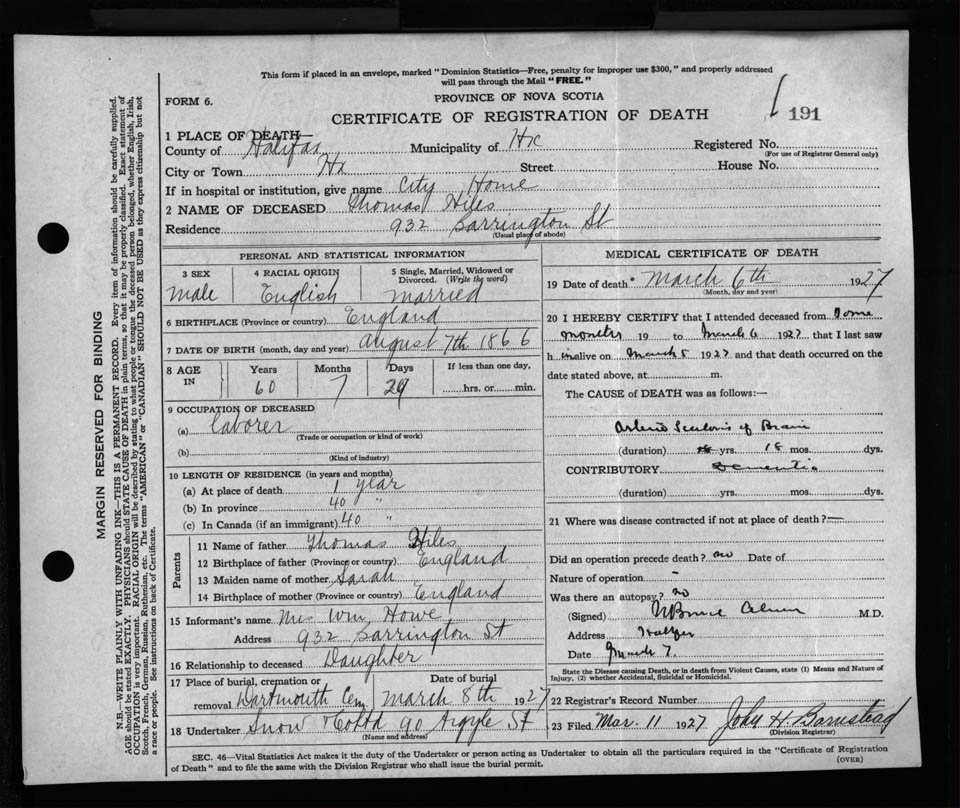 This form if placed in an envelope, marked "Dominion Statistics—Free, penalty for improper use $300," and properly addressed
will pass through the Mail "FREE."
FORM 6.
PROVINCE OF NOVA SCOTIA
CERTIFICATE OF REGISTRATION OF DEATH
191
1 PLACE OF DEATH—
County of Halifax Municipality of Hx Registered No.
(For use of Registrar General only)
City or Town Hx Street House No.
If in hospital or institution, give name City Home
2 NAME OF DECEASED Thomas Hiles
Residence 932 Barrington St
(Usual place of abode)
PERSONAL AND STATISTICAL INFORMATION
3 SEX 4 RACIAL ORIGIN 5 Single, Married, Widowed or Divorced. (Write the word)
Male English Married
6 BIRTHPLACE (Province or country) England
7 DATE OF BIRTH (month, day and year) August 7th 1866
8 AGE IN Years Months Days If less than one day,
60 7 29 hrs. or min.
9 OCCUPATION OF DECEASED
(a) Laborer
(Trade or occupation or kind of work)
(b)
(Kind of industry)
10 LENGTH OF RESIDENCE (in years and months)
(a) At place of death 1 year
(b) In province 40 "
(c) In Canada (if an immigrant) 40 "
Parents
11 Name of father Thomas Hiles
12 Birthplace of father (Province or country) England
13 Maiden name of mother Sarah
14 Birthplace of mother (Province or country) England
15 Informant's name Mrs Wm Howe
Address 932 Barrington St
16 Relationship to deceased Daughter
17 Place of burial, cremation or removal Dartmouth Cem Date of burial March 8th 1927
18 Undertaker Snow & Co Ltd 90 Argyle St
(Name and address)
MEDICAL CERTIFICATE OF DEATH
19 Date of death March 6th 1927
(Month, day and year)
20 I HEREBY CERTIFY that I attended deceased from Some
months 19 to March 6 1927 that I last saw
h im alive on March 5 1927 and that death occurred on the
date stated above, at m.
The CAUSE of DEATH was as follows:—
Arterio Sclerosis of Brain
(duration) yrs. 18 mos. dys.
CONTRIBUTORY Dementia
(duration) yrs. mos. dys.
21 Where was disease contracted if not at place of death? —
Did an operation precede death? no Date of
Nature of operation –
Was there an autopsy? no
(Signed) M.D.
Address Halifax
Date March 7.
State the Disease causing Death, or in death from Violent Causes, state (1) Means and Nature of
Injury, (2) whether Accidental, Suicidal or Homicidal.
22 Registrar's Record Number
23 Filed Mar. 11 1927 John H Barnstead
(Division Registrar)
SEC. 46—Vital Statistics Act makes it the duty of the Undertaker or person acting as Undertaker to obtain all the particulars required in the "Certificate of Registration
of Death" and to file the same with the Division Registrar who shall issue the burial permit.
(OVER)
MARGIN RESERVED FOR BINDING
N.B.—WRITE PLAINLY, WITH UNFADING INK—THIS IS A PERMANENT RECORD. Every item of information should be carefully supplied.
AGE should be stated EXACTLY. PHYSICIANS should STATE CAUSE OF DEATH in plain terms, so that it may be properly classified. Exact statement of
OCCUPATION is very important. RACIAL ORIGIN will be described by stating to what people or tongue the deceased person belonged, whether English, Irish,
Scotch, French, German, Russian, Ruthenian, etc. The terms "AMERICAN" or "CANADIAN" SHOULD NOT BE USED as they express citizenship but not
a race or people. See instructions on back of Certificate.